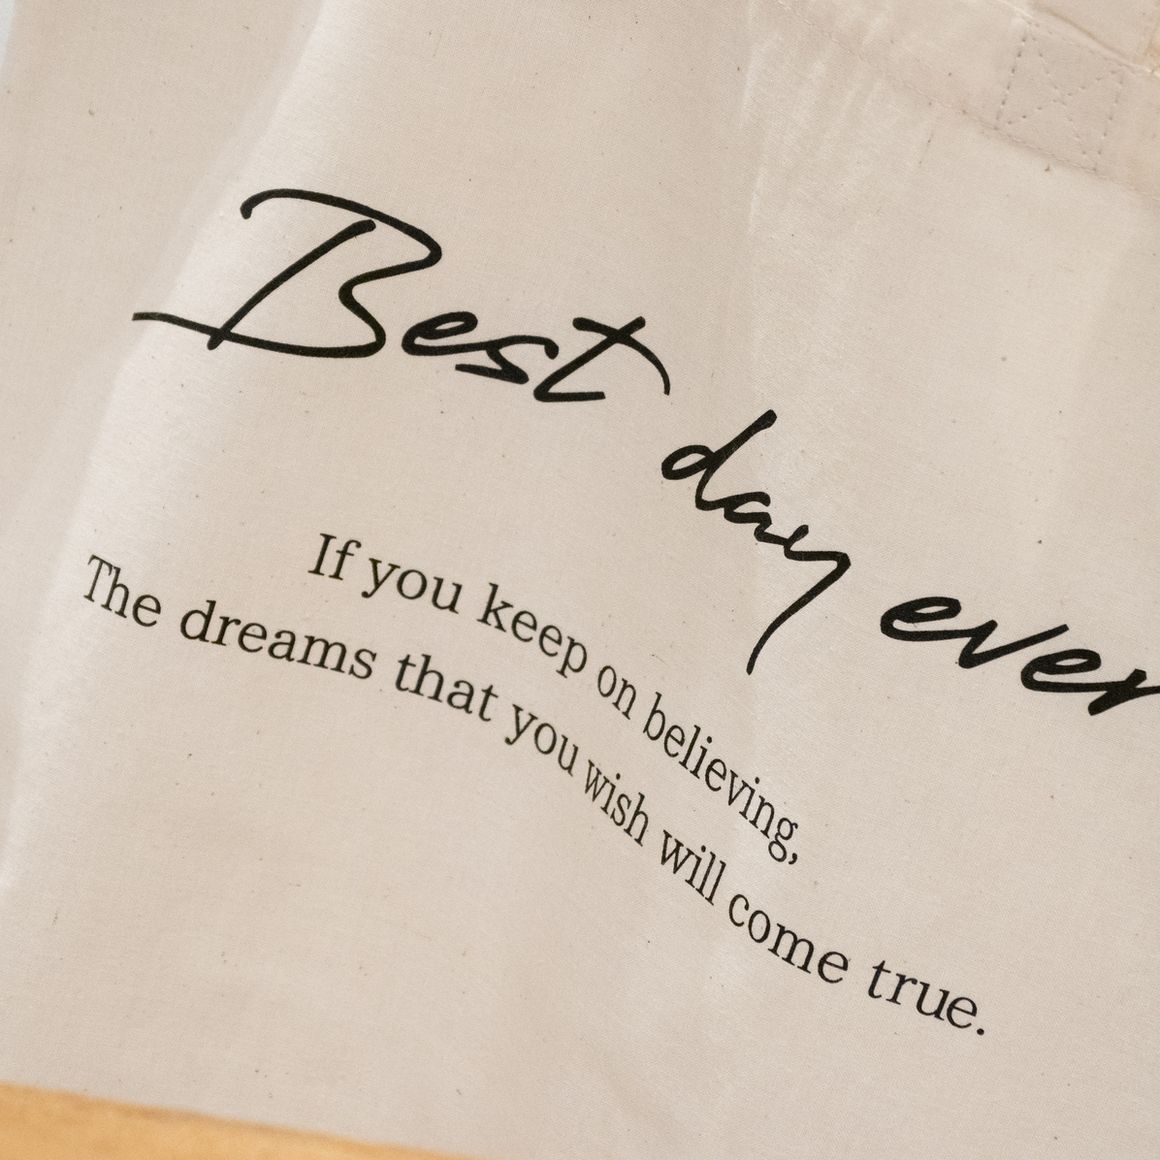 Best day ever
If you keep on believing,
The dreams that you wish will come true.